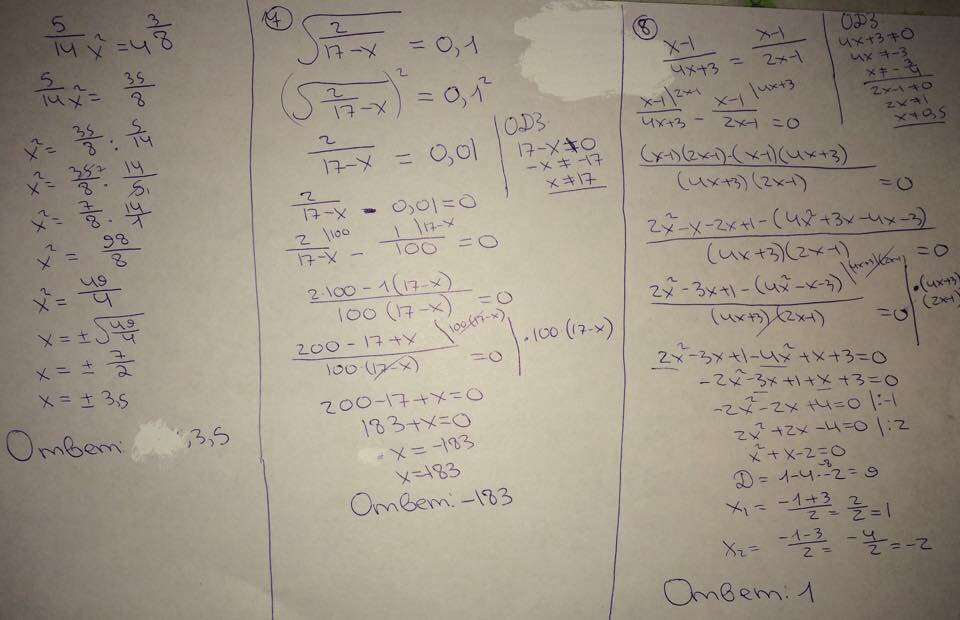 5/14 x² = 4 3/8
5/14 x² = 35/8
x² = 35/8 : 5/14
x² = 35/8 · 14/5
x² = 7/8 · 14/1
x² = 98/8
x² = 49/4
x = ± √49/4
x = ± 7/2
x = ± 3,5
Ответ: ,3,5
7
√(2/(17-x)) = 0,1
(√(2/(17-x)))² = 0,1²
2/(17-x) = 0,01
ОДЗ
17-x ≠ 0
-x ≠ -17
x ≠ 17
2/(17-x) - 0,01=0
2/(17-x) |100 - 1/100 |17-x = 0
(2·100-1(17-x))/(100(17-x)) = 0
(200-17+x)/(100·(17-x)) |100(17-x) = 0 | ·100·(17-x)
200-17+x=0
183+x=0
x=-183
x=-183
Ответ: -183
8
(x-1)/(4x+3) = (x-1)/(2x-1)
ОДЗ
4x+3≠0
4x≠-3
x≠-3/4
2x-1≠0
2x≠1
x≠0,5
(x-1)/(4x+3) |2x-1 - (x-1)/(2x-1) |4x+3 = 0
((x-1)(2x-1)-(x-1)(4x+3))/((4x+3)(2x-1)) = 0
(2x²-x-2x+1-(4x²+3x-4x-3))/((4x+3)(2x-1)) = 0
(2x²-3x+1-(4x²-x-3))/((4x+3)(2x-1)) |(4x+3)(2x-1) = 0 | ·(4x+3)(2x-1)
2x²-3x+1-4x²+x+3=0
-2x²-3x+1+x+3=0
-2x²-2x+4=0 |:-1
2x²+2x-4=0 |:2
x²+x-2=0
D=1-4·-2=9
x₁ = (-1+3)/2 = 2/2 = 1
x₂ = (-1-3)/2 = -4/2 = -2
Ответ: 1